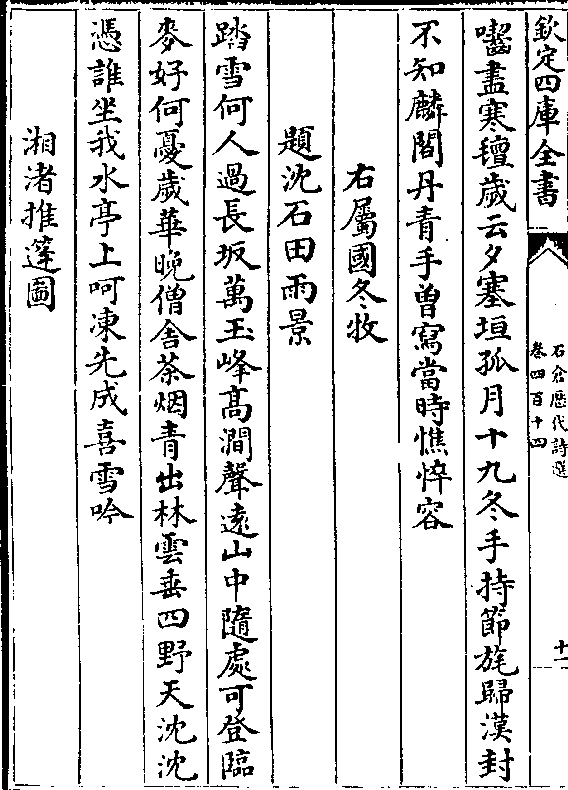 欽定四庫全書
石倉歷代詩選
卷四百十四
十一
囓盡寒氊歲云夕塞垣孤月十九冬手持節旄歸漢封
不知麟閣丹青手曽寫當時憔悴容
右屬國冬牧
題沈石田雨景
踏雪何人過長坂萬玉峰髙澗聲遠山中隨處可登臨
麥好何憂歲華晩僧舎茶烟青出林雲垂四野天沈沈
憑誰坐我水亭上呵凍先成喜雪吟
湘渚推篷圖